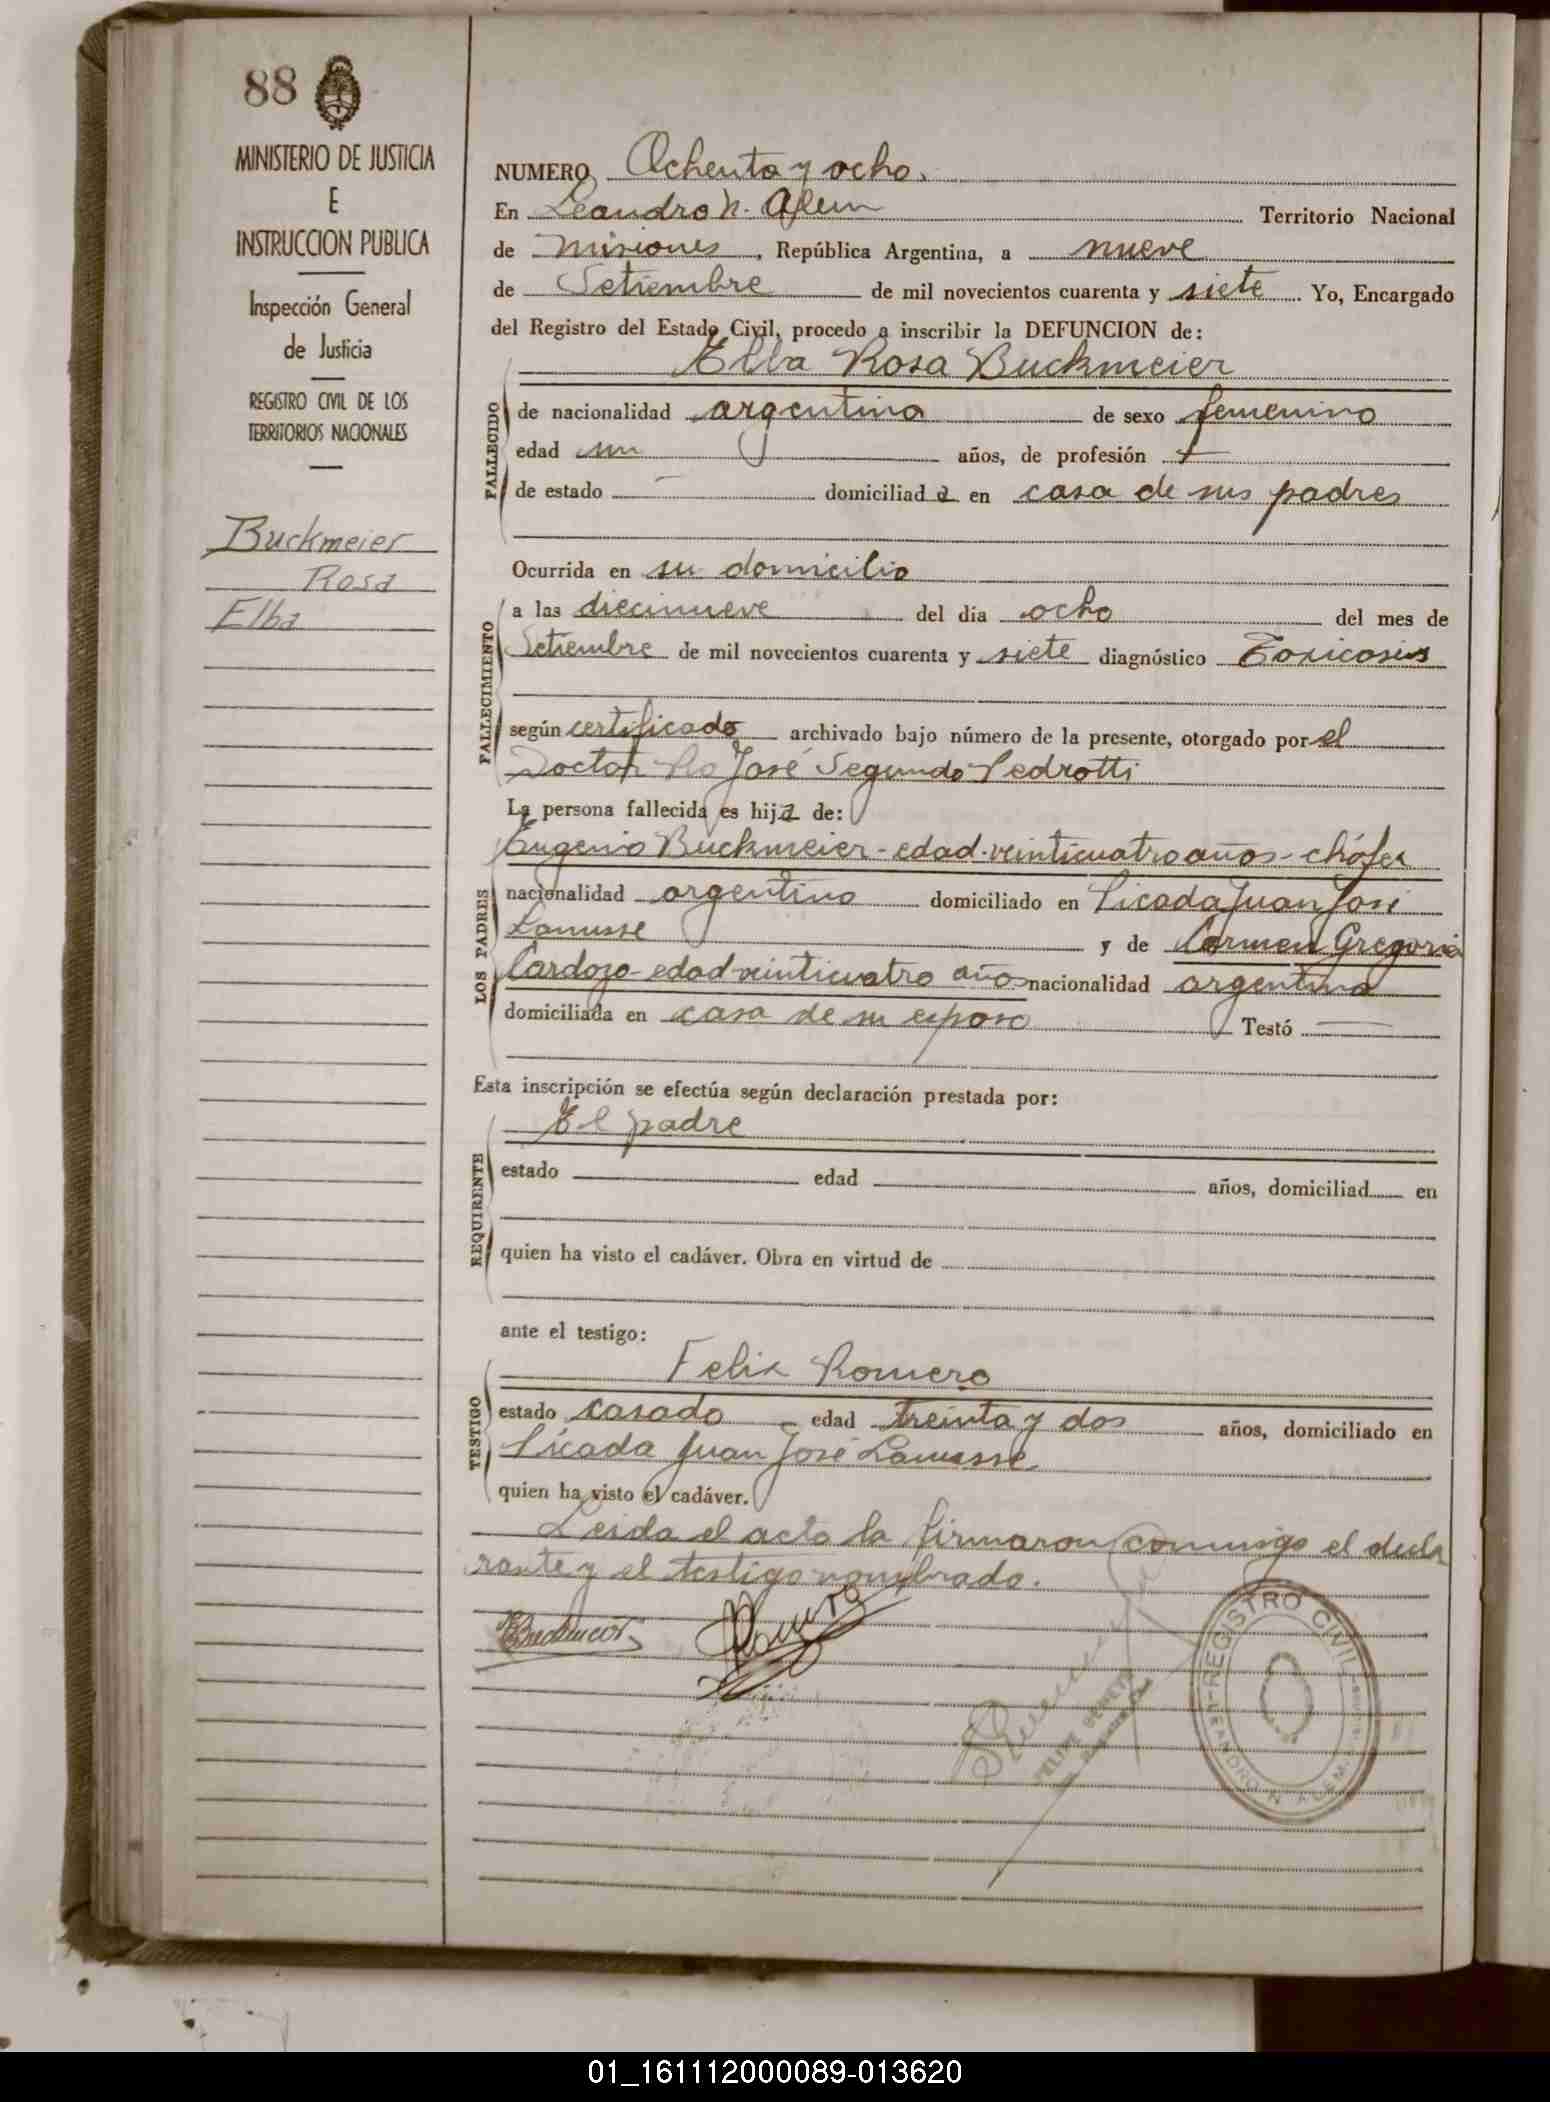 88
MINISTERIO DE JUSTICIA
E
INSTRUCCION PUBLICA
Inspección General
de Justicia
REGISTRO CIVIL DE LOS
TERRITORIOS NACIONALES
Buckmeier
Rosa
Elba
NUMERO Ochenta y ocho.
En Leandro N. Alem Territorio Nacional
de Misiones, República Argentina, a nueve
de Setiembre de mil novecientos cuarenta y siete. Yo, Encargado
del Registro del Estado Civil, procedo a inscribir la DEFUNCION de:
Elba Rosa Buckmeier
FALLECIDO
de nacionalidad argentina de sexo femenino
edad un años, de profesión
de estado — domiciliada en casa de sus padres
Ocurrida en su domicilio
FALLECIMIENTO
a las diecinueve del día ocho del mes de
Setiembre de mil novecientos cuarenta y siete diagnóstico Toxicosis
según certificado archivado bajo número de la presente, otorgado por el
Doctor José Segundo Pedrotti
La persona fallecida es hija de:
LOS PADRES
Eugenio Buckmeier - edad - veinticuatro años - chófer
nacionalidad argentino domiciliado en Picada Juan José
Lanusse y de Carmen Gregoria
Cardozo - edad veinticuatro años nacionalidad argentina
domiciliada en casa de su esposo Testó —
Esta inscripción se efectúa según declaración prestada por:
El padre
REQUIRENTE
estado edad años, domiciliad en
quien ha visto el cadáver. Obra en virtud de
ante el testigo:
Felix Romero
TESTIGO
estado casado edad treinta y dos años, domiciliado en
Picada Juan José Lanusse
quien ha visto el cadáver.
Leida el acta la firmaron conmigo el decla
rante y el testigo nombrado.
EBuckmeier
REGISTRO CIVIL
LEANDRO N. ALEM
FELIPE
01_161112000089-013620